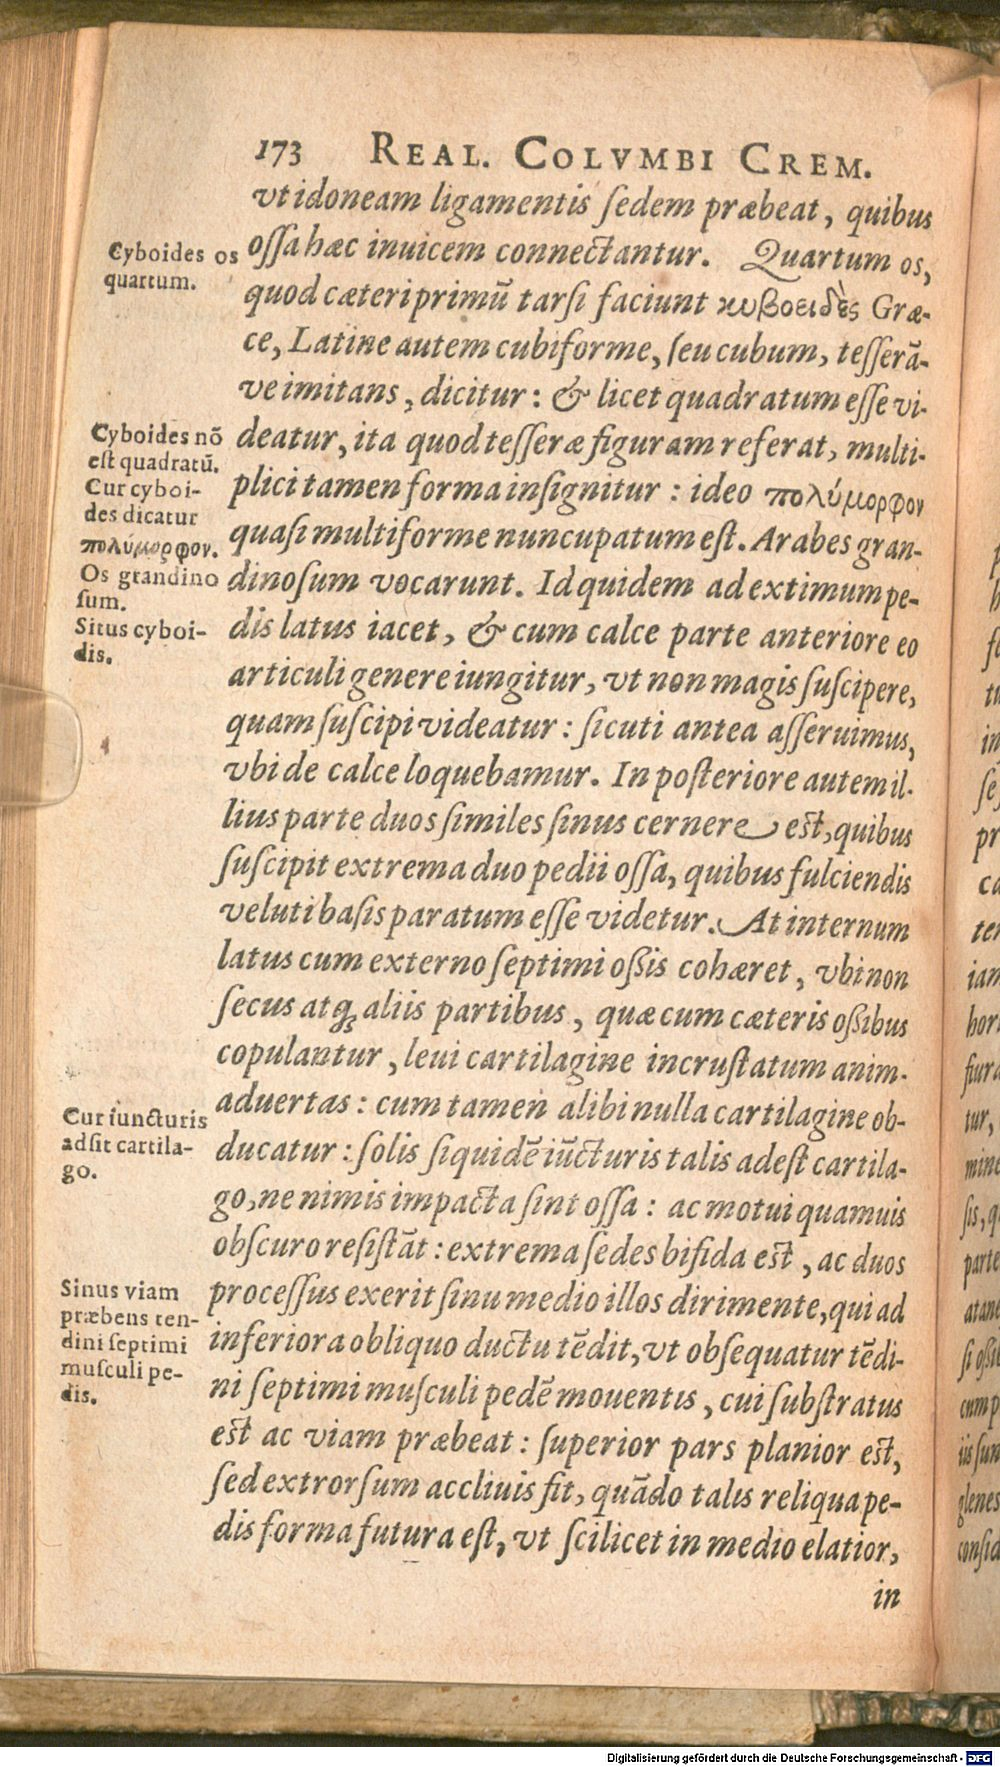 173 REAL. COLVMBI CREM.
vt idoneam ligamentis ſedem præbeat, quibus
oſſa hæc inuicem connectantur. Quartum os,
quod cæteri primū tarſi faciunt κυβοειδὲς Græ-
ce, Latine autem cubiforme, ſeu cubum, teſſerā-
ve imitans, dicitur: & licet quadratum eſſe vi-
deatur, ita quod teſſeræ figuram referat, multi-
plici tamen forma inſignitur: ideo πολύμορφον
quaſi multiforme nuncupatum eſt. Arabes gran-
dinoſum vocarunt. Id quidem ad extimum pe-
dis latus iacet, & cum calce parte anteriore eo
articuli genere iungitur, vt non magis ſuſcipere,
quam ſuſcipi videatur: ſicuti antea aſſeruimus,
vbi de calce loquebamur. In poſteriore autem il-
lius parte duos ſimiles ſinus cernere eſt, quibus
ſuſcipit extrema duo pedii oſſa, quibus fulciendis
veluti baſis paratum eſſe videtur. At internum
latus cum externo ſeptimi oßis cohæret, vbi non
ſecus atq; aliis partibus, quæ cum cæteris oßibus
copulantur, leui cartilagine incruſtatum anim-
aduertas: cum tamen alibi nulla cartilagine ob-
ducatur: ſolis ſiquidē iūcturis talis adeſt cartila-
go, ne nimis impacta ſint oſſa: ac motui quamuis
obſcuro reſiſtāt: extrema ſedes bifida eſt, ac duos
proceſſus exerit ſinu medio illos dirimente, qui ad
inferiora obliquo ductu tēdit, vt obſequatur tēdi-
ni ſeptimi muſculi pedē mouentis, cui ſubſtratus
eſt ac viam præbeat: ſuperior pars planior eſt,
ſed extrorſum accliuis fit, quādo talis reliqua pe-
dis forma futura eſt, vt ſcilicet in medio elatior,
in
Cyboides os
quartum.
Cyboides nō
eſt quadratū.
Cur cyboi-
des dicatur
πολύμορφον.
Os grandino
ſum.
Situs cyboi-
dis.
Cur iuncturis
adſit cartila-
go.
Sinus viam
præbens ten-
dini ſeptimi
muſculi pe-
dis.
Digitalisierung gefördert durch die Deutsche Forschungsgemeinschaft - DFG